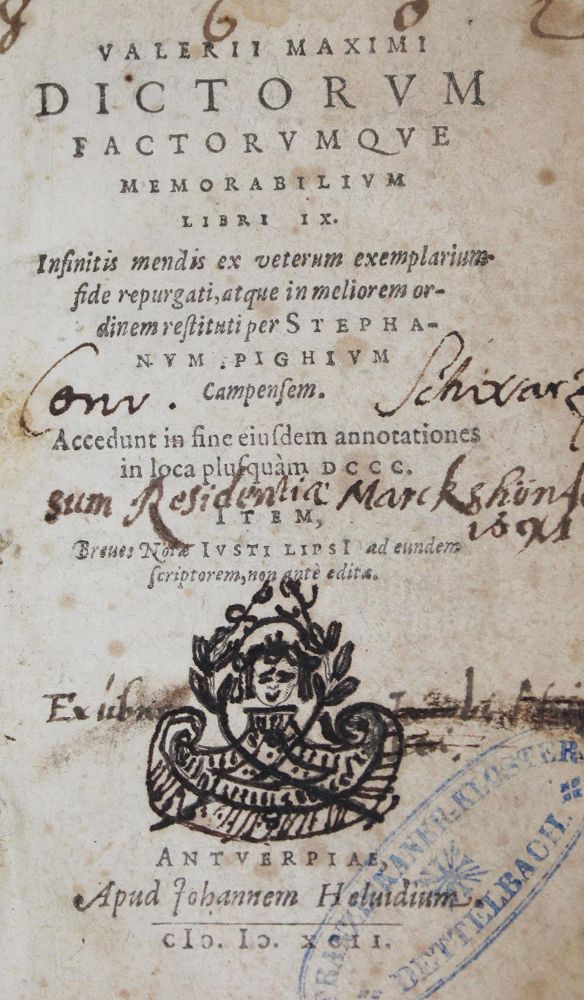 8 6 0 2
VALERII MAXIMI
DICTORVM
FACTORVMQVE
MEMORABILIVM
LIBRI IX.
Infinitis mendis ex veterum exemplarium
fide repurgati, atque in meliorem or-
dinem restituti per STEPHA-
NVM PIGHIVM
Campensem.
Conv. Schwarz
Accedunt in fine eiusdem annotationes
in loca plusquàm DCCC.
sum Residentiæ Marck
ITEM,
Breues Notæ IVSTI LIPSI ad eundem
scriptorem, non antè editæ.
ANTVERPIAE,
Apud Johannem Heluidium.
CIↃ. IↃ. XCII.
FRANZISKANER-KLOSTER
DETTELBACH.